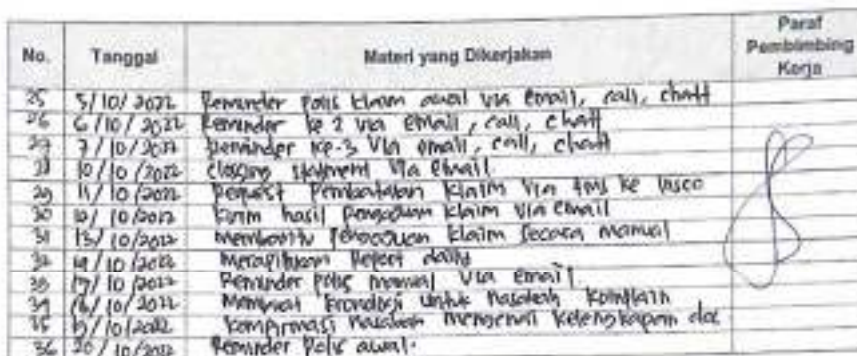 No. Tanggal Materi yang Dikerjakan Paraf Pembimbing Kerja
25 5/10/2022 Reminder polis klaim awal via email, call, chatt
26 6/10/2022 Reminder ke 2 via email, call, chatt
27 7/10/2022 Reminder ke-3 via email, call, chatt
28 10/10/2022 Closing statement via email.
29 11/10/2022 Request Pembatalan klaim via ke
30 12/10/2022 Kirim hasil pengajuan klaim via email
31 13/10/2022 membantu pengajuan klaim secara manual
32 14/10/2022 merapihkan Report daily
33 17/10/2022 Reminder polis manual via email
34 18/10/2022 Membuat kronologi untuk nasabah komplain
35 19/10/2022 Konfirmasi nasabah mengenai kelengkapan doc
36 20/10/2022 Reminder polis awal.